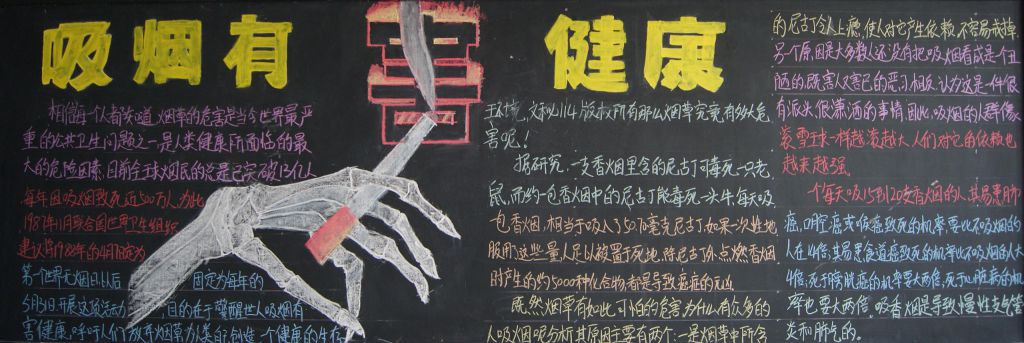 吸烟有害健康
相信每一个人都知道,烟草的危害是当今世界最严
重的公共卫生问题之一,是人类健康所面临的最
大的危险因素。目前全球烟民的总是已突破13亿人
每年因吸烟致死近500万人,为此
1987年11月联合国世界卫生组织
建议将1988年的4月7日定为
第一个世界无烟日,以后 固定为每年的
5月31日,开展这项活动 目的在于警醒世人吸烟有
害健康,呼吁人们放弃烟草为人类创造一个健康的生存
环境,文秘114版权所有那么烟草究竟有多大危
害呢!
据研究,一支香烟里含的尼古丁可毒死一只老
鼠,而约一包香烟中的尼古丁能毒死一头牛,每天吸
一包香烟,相当于吸入了50-70毫克尼古丁如果一次性地
服用,这些量人足以被置于死地,除尼古丁外点燃香烟
时产生的约5000种化合物,都是导致癌症的元凶
既然烟草有如此可怕的危害,为什么有众多的
人吸烟呢分析其原因主要有两个:一是烟草中所含
的尼古丁令人上瘾,使人对它产生依赖,不容易戒掉,
另个原因是大多数人还没有把吸烟看成是个丑
陋的既害人又害己的恶习相反,认为这是一件很
有派头,很潇洒的事情,因此,吸烟的人群像
滚雪球一样越滚越大,人们对它的依赖也
越来越强。
个每天吸15到20支香烟的人,其易患肺
癌,口腔癌或喉癌致死的机率要比不吸烟的
人在14倍;其易患食道癌致死的机率比不吸烟的人大
4倍;死于膀胱癌的机率要大两倍,死于心脏病的机
率也要大两倍,吸香烟是导致慢性支气管
炎和肺气的。